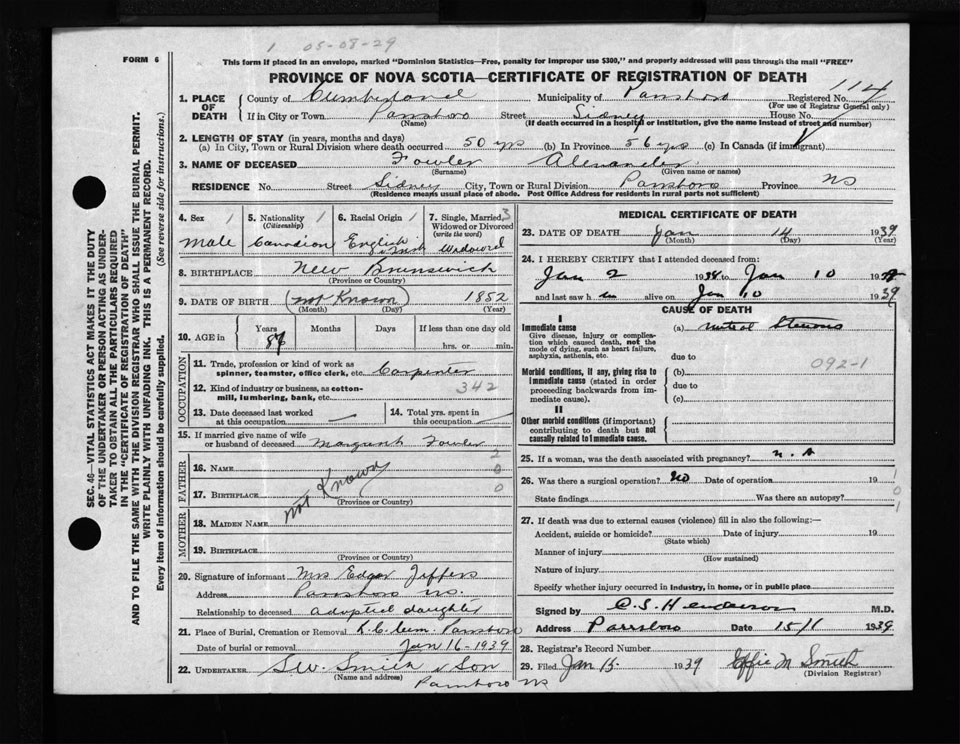 1 05-08-29
FORM 6
This form if placed in an envelope, marked "Dominion Statistics—Free, penalty for improper use $300," and properly addressed will pass through the mail "FREE"
PROVINCE OF NOVA SCOTIA—CERTIFICATE OF REGISTRATION OF DEATH
114
1. PLACE OF DEATH
County of Cumberland Municipality of Parrsboro Registered No.
(For use of Registrar General only)
If in City or Town Parrsboro Street Sidney House No.
(Name) (If death occurred in a hospital or institution, give the name instead of street and number)
2. LENGTH OF STAY (in years, months and days)
(a) In City, Town or Rural Division where death occurred 50 yrs (b) In Province 56 yrs (c) In Canada (if immigrant)
3. NAME OF DECEASED Fowler Alexander
(Surname) (Given name or names)
RESIDENCE No. Street Sidney City, Town or Rural Division Parrsboro Province NS
(Residence means usual place of abode. Post Office Address for residents in rural parts not sufficient)
SEC. 46—VITAL STATISTICS ACT MAKES IT THE DUTY
OF THE UNDERTAKER OR PERSON ACTING AS UNDER-
TAKER TO OBTAIN ALL THE PARTICULARS REQUIRED
IN THE "CERTIFICATE OF REGISTRATION OF DEATH"
AND TO FILE THE SAME WITH THE DIVISION REGISTRAR WHO SHALL ISSUE THE BURIAL PERMIT.
WRITE PLAINLY WITH UNFADING INK. THIS IS A PERMANENT RECORD.
Every item of information should be carefully supplied. (See reverse side for instructions.)
4. Sex 1 5. Nationality 1 6. Racial Origin 1 7. Single, Married, 3
(Citizenship) Widowed or Divorced
(write the word)
Male Canadian English Irish Widowed
8. BIRTHPLACE New Brunswick
(Province or Country)
9. DATE OF BIRTH (not Known) 1852
(Month) (Day) (Year)
10. AGE in Years Months Days If less than one day old
86 hrs. or min.
OCCUPATION
11. Trade, profession or kind of work as
spinner, teamster, office clerk, etc. Carpenter
12. Kind of industry or business, as cotton- 342
mill, lumbering, bank, etc.
13. Date deceased last worked
at this occupation
14. Total yrs. spent in
this occupation
15. If married give name of wife
or husband of deceased Margaret Fowler
FATHER
16. NAME 2
0
17. BIRTHPLACE not Known 0
(Province or Country)
MOTHER
18. MAIDEN NAME
19. BIRTHPLACE
(Province or Country)
20. Signature of informant Mrs Edgar Jeffers
Address Parrsboro NS.
Relationship to deceased Adopted daughter
21. Place of Burial, Cremation or Removal R.C. Cem. Parrsboro
Date of burial or removal Jan 16-1939
22. UNDERTAKER S.W. Smith & Son
(Name and address)
Parrsboro NS
MEDICAL CERTIFICATE OF DEATH
23. DATE OF DEATH Jan 14 1939
(Month) (Day) (Year)
24. I HEREBY CERTIFY that I attended deceased from:
Jan 2 19 to Jan 10 19
and last saw h im alive on Jan 10 1939
CAUSE OF DEATH
I
Immediate cause
Give disease, injury or complica-
tion which caused death, not the
mode of dying, such as heart failure,
asphyxia, asthenia, etc.
(a) Mitral Stenosis
due to
092-1
Morbid conditions, if any, giving rise to
immediate cause (stated in order
proceeding backwards from im-
mediate cause).
(b)
due to
(c)
II
Other morbid conditions (if important)
contributing to death but not
causally related to immediate cause.
25. If a woman, was the death associated with pregnancy? N.A
26. Was there a surgical operation? No Date of operation 19 1
State findings Was there an autopsy? 0
1
27. If death was due to external causes (violence) fill in also the following:—
Accident, suicide or homicide? Date of injury 19
(State which)
Manner of injury
(How sustained)
Nature of injury
Specify whether injury occurred in industry, in home, or in public place
Signed by C.S. Henderson M.D.
Address Parrsboro Date 15/1 1939
28. Registrar's Record Number
29. Filed Jan 15 1939 Effie M Smith
(Division Registrar)